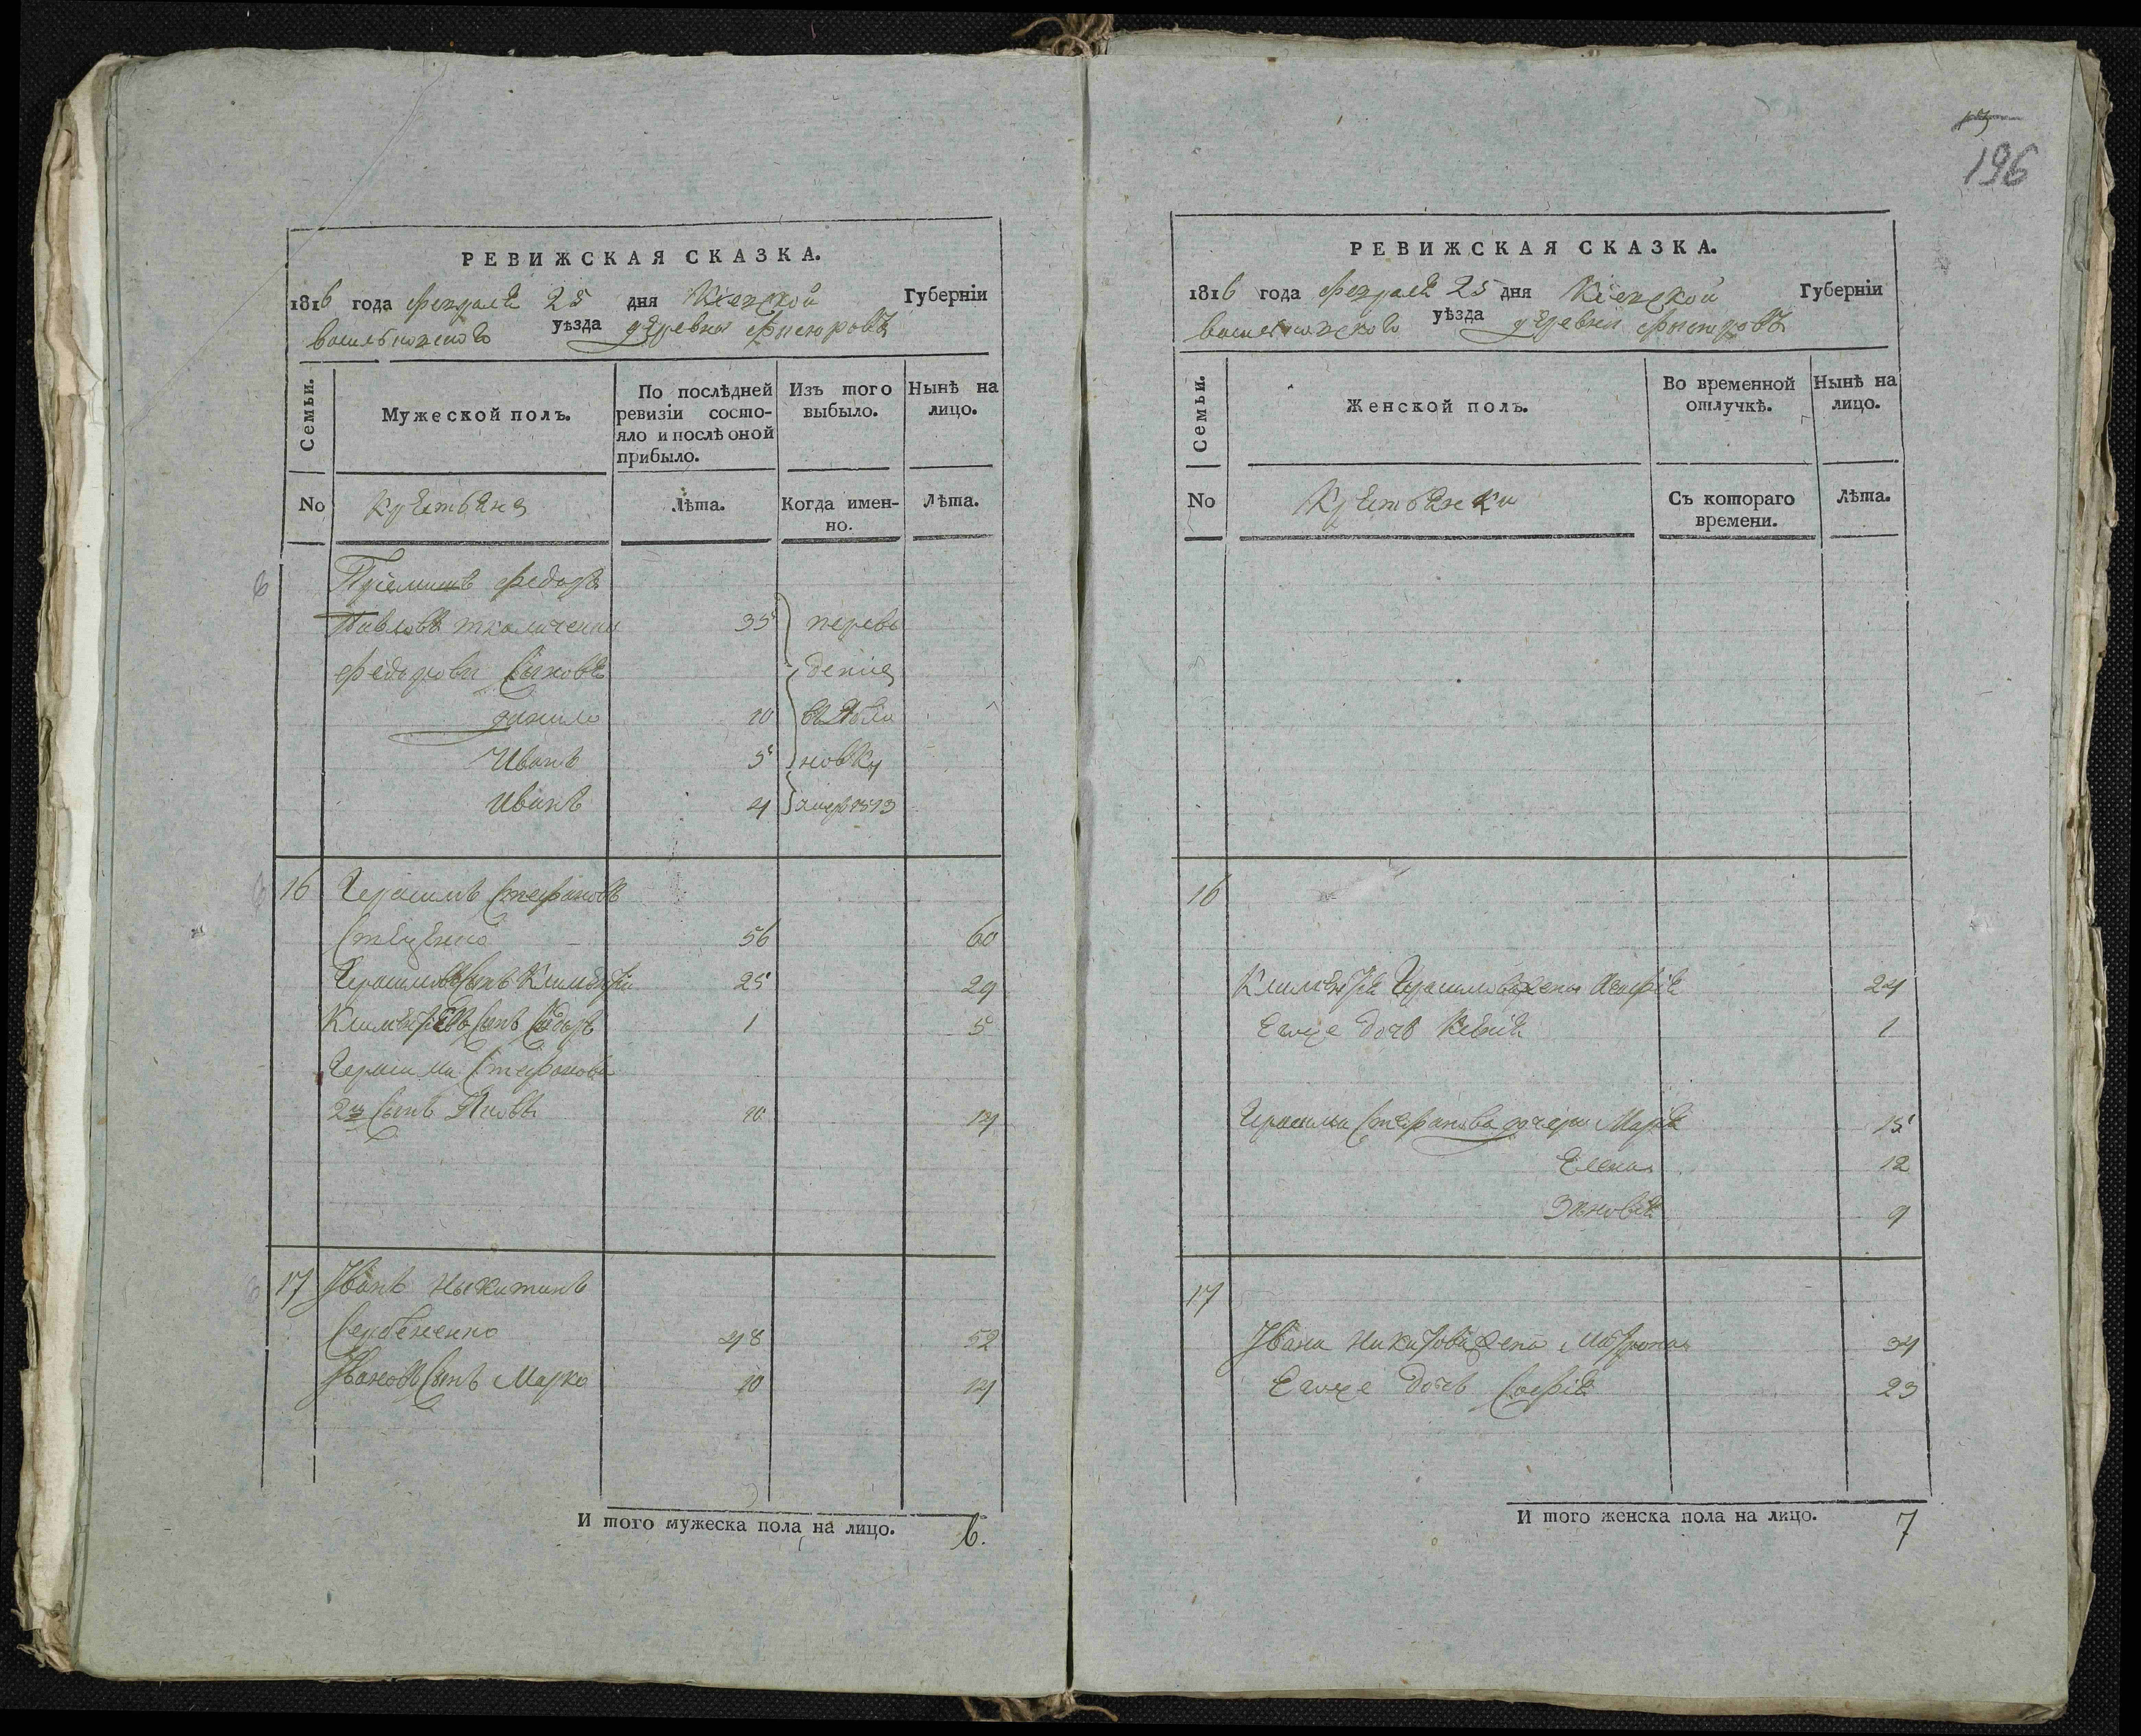 196
РЕВИЖСКАЯ СКАЗКА.
1816 года февраля 25 дня Кіевской Губерніи
васильковского уѣзда деревни
Семьи.
Мужеской полъ.
По послѣдней ревизіи состо-
яло и послѣ оной прибыло.
Изъ того выбыло.
Нынѣ на лицо.
No
Крестьяне
Лѣта.
Когда имен-
но.
Лѣта.
Федоръ
Павловъ 35 переве
Федоровы сыновья дения
данило 10
Иванъ 5 новку
Иванъ 4 1813
16 Герасимъ Стефановъ
Стеценко 56 60
Герасимовъ сынъ Климентій 25 29
Климентіевъ сынъ Сидоръ 1 5
Герасима Стефанова
2й сынъ Яковъ 10 14
17 Іванъ Никитинъ
Сербененко 48 52
Івановъ сынъ Марко 10 14
И того мужеска пола на лицо. 6.
РЕВИЖСКАЯ СКАЗКА.
1816 года февраля 25 дня Кіевской Губерніи
васильковского уѣзда деревни
Семьи.
Женской полъ.
Во временной отлучкѣ.
Нынѣ на лицо.
No
Крестьянки
Съ котораго времени.
Лѣта.
16
Климентія Герасимова жена 24
Егоже дочь 1
Герасима Стефанова дочери Марія 15
Елена 12
Зѣновія 9
17
Івана Никитова жена Матрона 34
Егоже дочь Софія 23
И того женска пола на лицо. 7